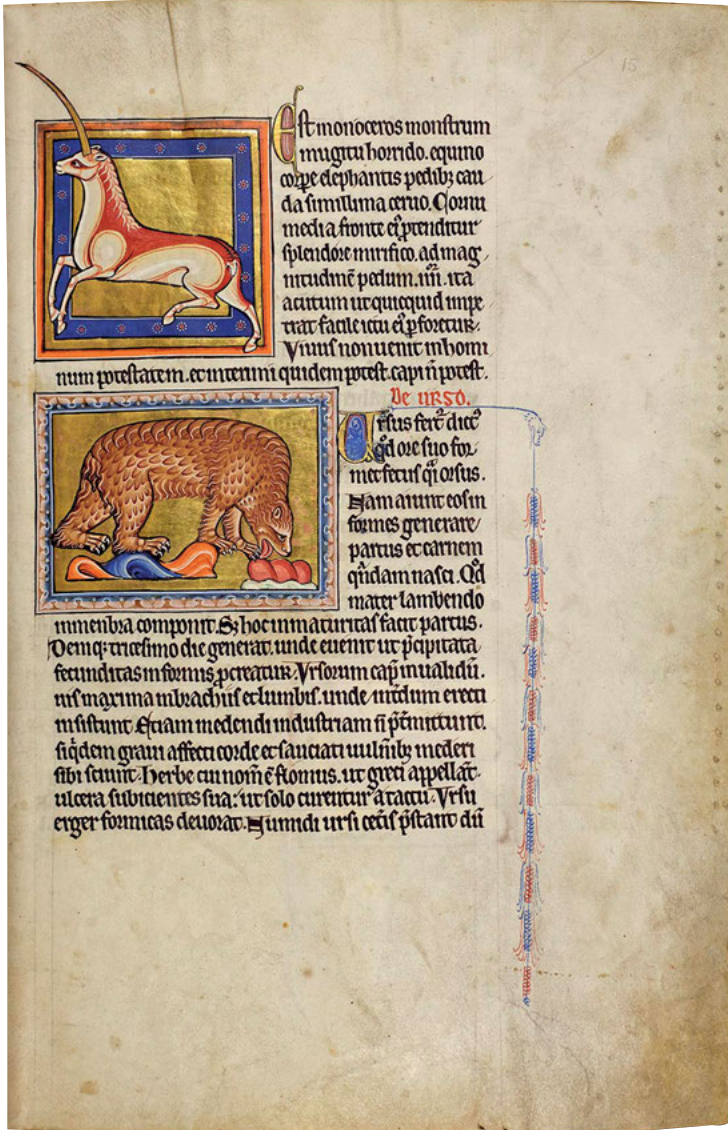 15
Est monoceros monstrum
mugitu horrido. equino
corpe elephantis pedibꝫ cau
da simillima ceruo. Cornu
media fronte eiꝰ ptenditur
splendore mirifico. ad mag
nitudinē pedum .iiii. ita
acutum ut quicquid impe
trat facile ictu eiꝰ pforetur.
Viuus non uenit in homi
num potestatem. et interimi quidem potest. capi ñ potest.
De urso.
Ursus fert᷑ dictꝰ
qd ore suo for
met fetus qͥ orsus.
Nam aiunt eos in
formes generare
partus et carnem
qͣndam nasci. Qd
mater lambendo
in menbra componit. Sꝫ hoc inmaturitas facit partus.
Deniqꝫ tricesimo die generat. unde euenit ut pͥcipitata
fecunditas informis pcreatur. Vrsorum cap̄ inualidū.
uis maxima in brachiis et lumbis. unde int̄dum erecti
insistunt. Etiam medendi industriam ñ pͥt̄mittunt.
siqͥdem graui affecti corde et sauciati uuln̄ibꝫ mederi
sibi sciunt. Herbe cui nom̄ ē flomus. ut greci appellāt.
ulcera subicientes sua: ut solo curentur a tactu. Vrsu
erger formicas deuorat. Numidi ursi cet̄is pͥstant dū